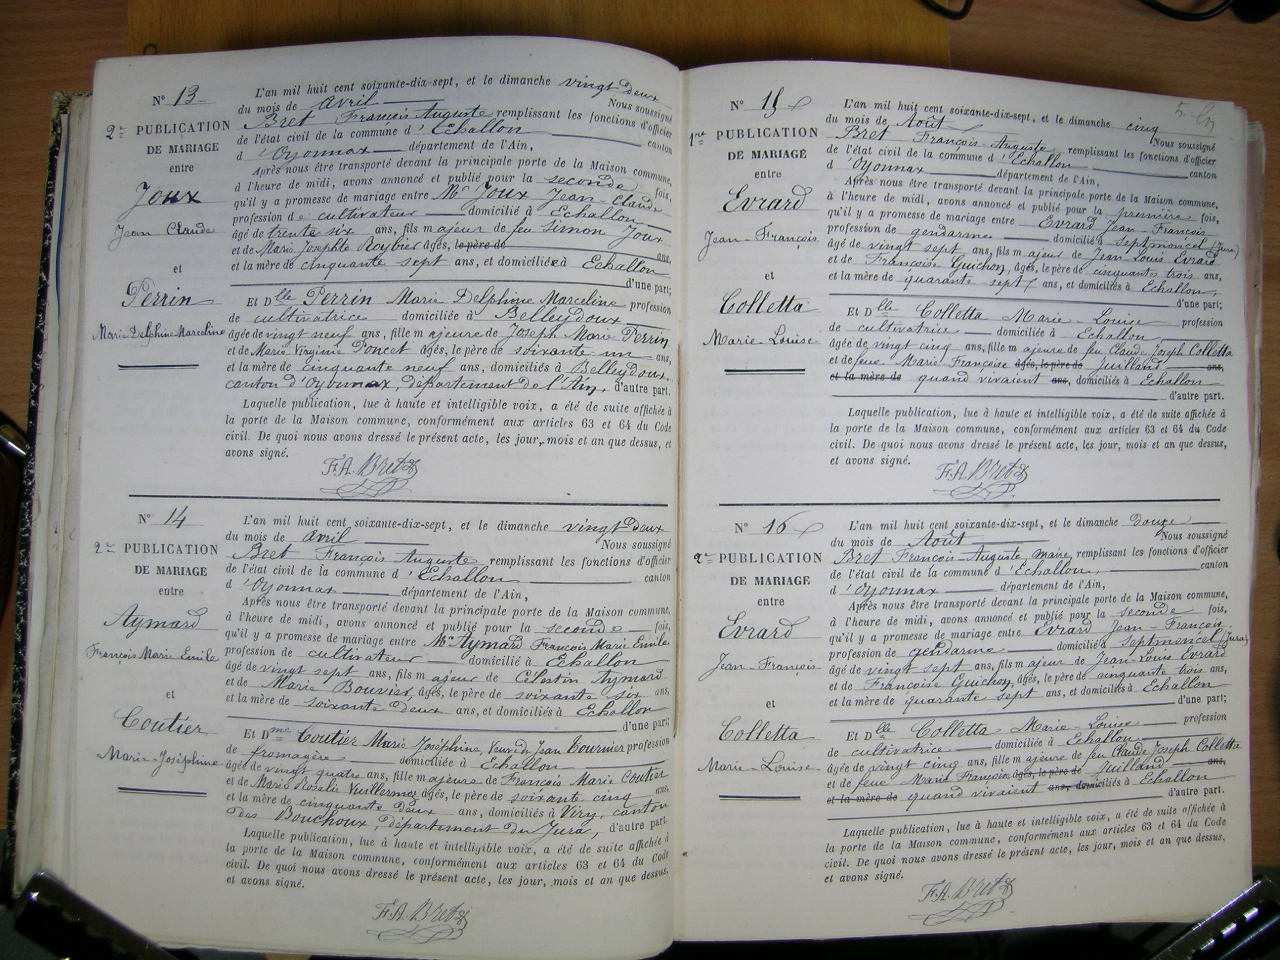 N° 13
2me PUBLICATION
DE MARIAGE
entre
Joux
Jean Claude
et
Perrin
Marie Delphine Marceline
L'an mil huit cent soixante-dix-sept, et le dimanche vingt Deux
du mois de avril Nous soussigné
Bret François Auguste remplissant les fonctions d'officier
de l'état civil de la commune d'Echallon canton
d'Oyonnax département de l'Ain,
Après nous être transporté devant la principale porte de la Maison commune,
à l'heure de midi, avons annoncé et publié pour la seconde fois,
qu'il y a promesse de mariage entre Mr Joux Jean Claude
profession de cultivateur domicilié à Echallon
âgé de trente six ans, fils majeur de feu Simon Joux
et de Marie Josephte Roybier âgés, le père de ans,
et la mère de cinquante sept ans, et domiciliée à Echallon
d'une part;
Et Dlle Perrin Marie Delphine Marceline profession
de cultivatrice domiciliée à Belleydoux
âgée de vingt neuf ans, fille majeure de Joseph Marie Perrin
et de Marie Virginie Poncet âgés, le père de soixante un ans,
et la mère de cinquante neuf ans, domiciliés à Belleydoux,
canton d'Oyonnax, département de l'Ain, d'autre part.
Laquelle publication, lue à haute et intelligible voix, a été de suite affichée à
la porte de la Maison commune, conformément aux articles 63 et 64 du Code
civil. De quoi nous avons dressé le présent acte, les jour, mois et an que dessus, et
avons signé.
F.A. Bret
N° 14
2me PUBLICATION
DE MARIAGE
entre
Aymard
François Marie Emile
et
Coutier
Marie Joséphine
L'an mil huit cent soixante-dix-sept, et le dimanche vingt Deux
du mois de avril Nous soussigné
Bret François Auguste remplissant les fonctions d'officier
de l'état civil de la commune d'Echallon canton
d'Oyonnax département de l'Ain,
Après nous être transporté devant la principale porte de la Maison commune,
à l'heure de midi, avons annoncé et publié pour la seconde fois,
qu'il y a promesse de mariage entre Mr Aymard François Marie Emile
profession de cultivateur domicilié à Echallon
âgé de vingt sept ans, fils majeur de Célestin Aymard
et de Marie Bouvier, âgés, le père de soixante six ans,
et la mère de soixante deux ans, et domiciliés à Echallon
d'une part;
Et Dme Coutier Marie Joséphine, Veuve de Jean Tournier profession
de fromagère domiciliée à Echallon
âgée de vingt quatre ans, fille majeure de François Marie Coutier
et de Marie Rosalie Vuillermoz âgés, le père de soixante cinq ans,
et la mère de cinquante deux ans, domiciliés à Viry, canton
des Bouchoux, département du Jura, d'autre part.
Laquelle publication, lue à haute et intelligible voix, a été de suite affichée à
la porte de la Maison commune, conformément aux articles 63 et 64 du Code
civil. De quoi nous avons dressé le présent acte, les jour, mois et an que dessus,
et avons signé.
F.A. Bret
N° 15
1re PUBLICATION
DE MARIAGE
entre
Evrard
Jean-François
et
Colletta
Marie-Louise
L'an mil huit cent soixante-dix-sept, et le dimanche cinq
du mois de Août Nous soussigné
Bret François Auguste remplissant les fonctions d'officier
de l'état civil de la commune d'Echallon canton
d'Oyonnax département de l'Ain,
Après nous être transporté devant la principale porte de la Maison commune,
à l'heure de midi, avons annoncé et publié pour la première fois,
qu'il y a promesse de mariage entre Evrard Jean-François
profession de gendarme domicilié à Septmoncel (Jura)
âgé de vingt sept ans, fils majeur de Jean Louis Evrard
et de Françoise Guichon, âgés, le père de cinquante trois ans,
et la mère de quarante sept ans, et domiciliés à Echallon,
d'une part;
Et Dlle Colletta Marie Louise profession
de cultivatrice domiciliée à Echallon
âgée de vingt cinq ans, fille majeure de feu Claude Joseph Colletta
et de feue Marie Françoise âgés, le père de Juilland ans,
et la mère de quand vivaient ans, domiciliés à Echallon
d'autre part.
Laquelle publication, lue à haute et intelligible voix, a été de suite affichée à
la porte de la Maison commune, conformément aux articles 63 et 64 du Code
civil. De quoi nous avons dressé le présent acte, les jour, mois et an que dessus,
et avons signé.
F.A. Bret
N° 16
2me PUBLICATION
DE MARIAGE
entre
Evrard
Jean-François
et
Colletta
Marie-Louise
L'an mil huit cent soixante-dix-sept, et le dimanche Douze
du mois de Août Nous soussigné
Bret François Auguste, maire, remplissant les fonctions d'officier
de l'état civil de la commune d'Echallon, canton
d'Oyonnax département de l'Ain,
Après nous être transporté devant la principale porte de la Maison commune,
à l'heure de midi, avons annoncé et publié pour la seconde fois,
qu'il y a promesse de mariage entre Evrard Jean-François
profession de gendarme domicilié à Septmoncel (Jura)
âgé de vingt sept ans, fils majeur de Jean-Louis Evrard
et de Françoise Guichon, âgés, le père de cinquante trois ans,
et la mère de quarante sept ans, et domiciliés à Echallon
d'une part;
Et Dlle Colletta Marie Louise profession
de cultivatrice domiciliée à Echallon
âgée de vingt cinq ans, fille majeure de feu Claude Joseph Colletta
et de feue Marie François âgés, le père de Juilland ans,
et la mère de quand vivaient ans, domiciliés à Echallon
d'autre part.
Laquelle publication, lue à haute et intelligible voix, a été de suite affichée à
la porte de la Maison commune, conformément aux articles 63 et 64 du Code
civil. De quoi nous avons dressé le présent acte, les jour, mois et an que dessus,
et avons signé.
F.A. Bret